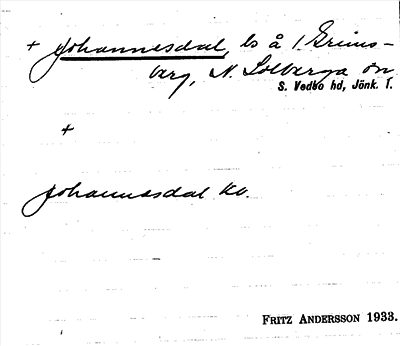 + Johannesdal, ls å 1 Grims-
berg, N. Solberga sn
S. Vedbo hd, Jönk. l.
+
Johannesdal Kv.
FRITZ ANDERSSON 1933.